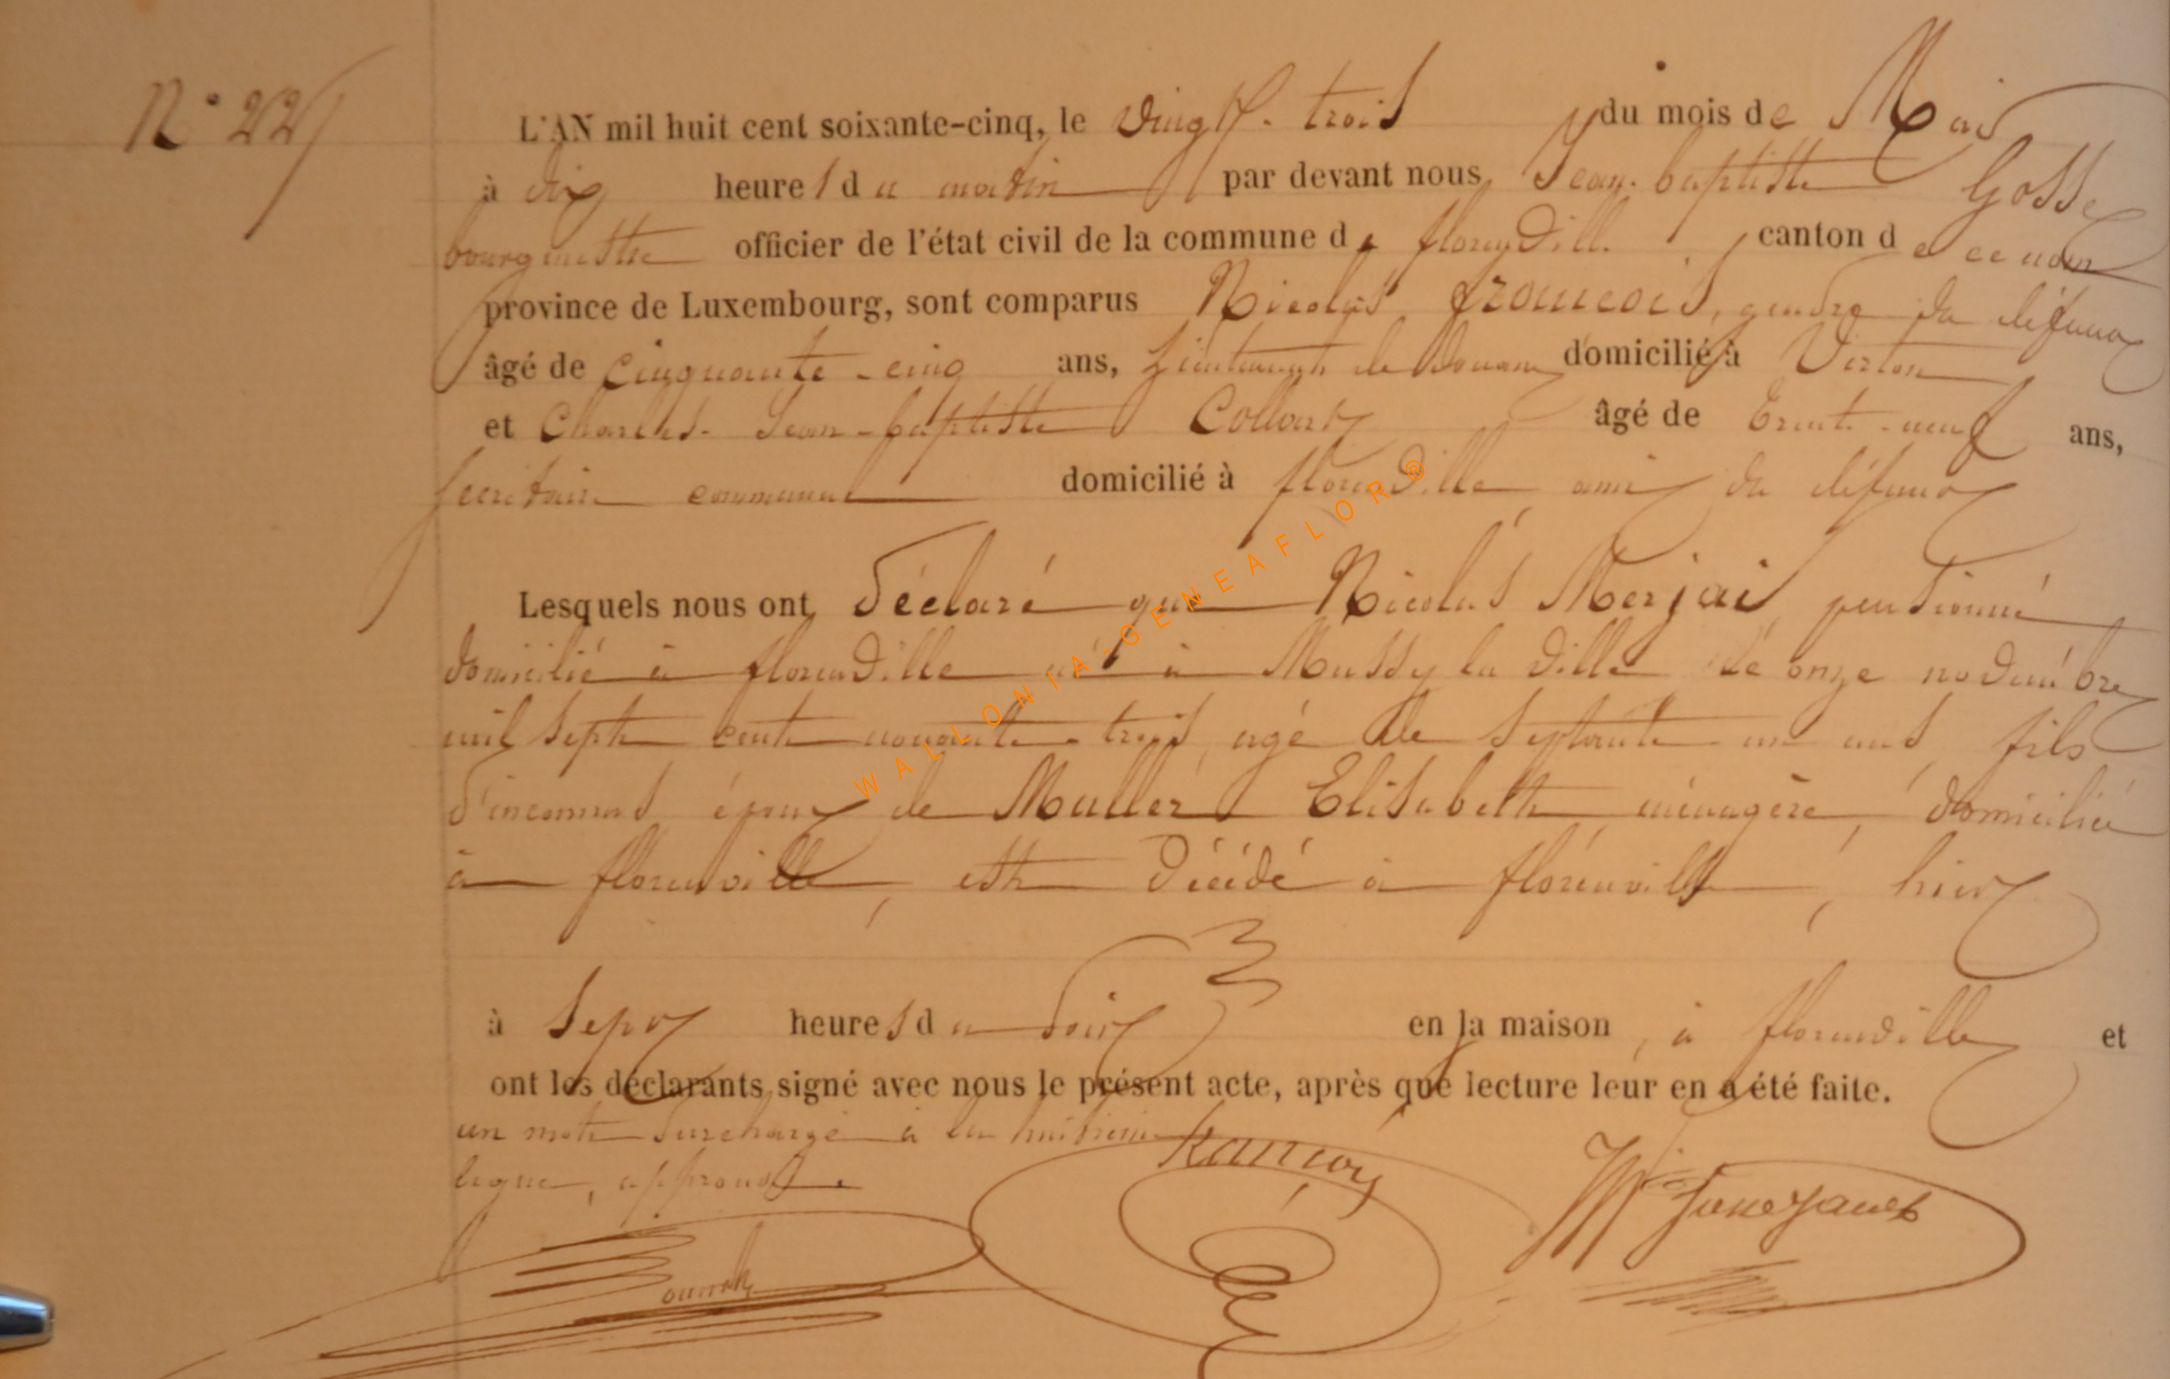 N° 22
L'AN mil huit cent soixante-cinq, le vingt-trois du mois de Mai
à dix heures du matin par devant nous Jean-baptiste Gosse
bourgmestre officier de l'état civil de la commune de florenville, canton de ce nom
province de Luxembourg, sont comparus Nicolas francois, gendre du défunt
âgé de cinquante-cinq ans, Lieutenant de douane domicilié à Virton
et Charles-Jean-baptiste Collart âgé de trente-neuf ans,
secrétaire communal domicilié à florenville ami du défunt
Lesquels nous ont déclaré que Nicolas Merjai, pensionné
domicilié à florenville né à Mussy la ville le onze novembre
mil sept cent nonante-trois, agé de septante-un ans, fils
d'inconnus, époux de Muller Elisabeth, ménagère, domiciliée
à florenville, est décédé à florenville, hier
à sept heures du soir en la maison, à florenville et
ont les déclarants signé avec nous le présent acte, après que lecture leur en a été faite.
un mot surchargé à la huitième
ligne, approuvé.
WALLONIA-GENEAFLOR®